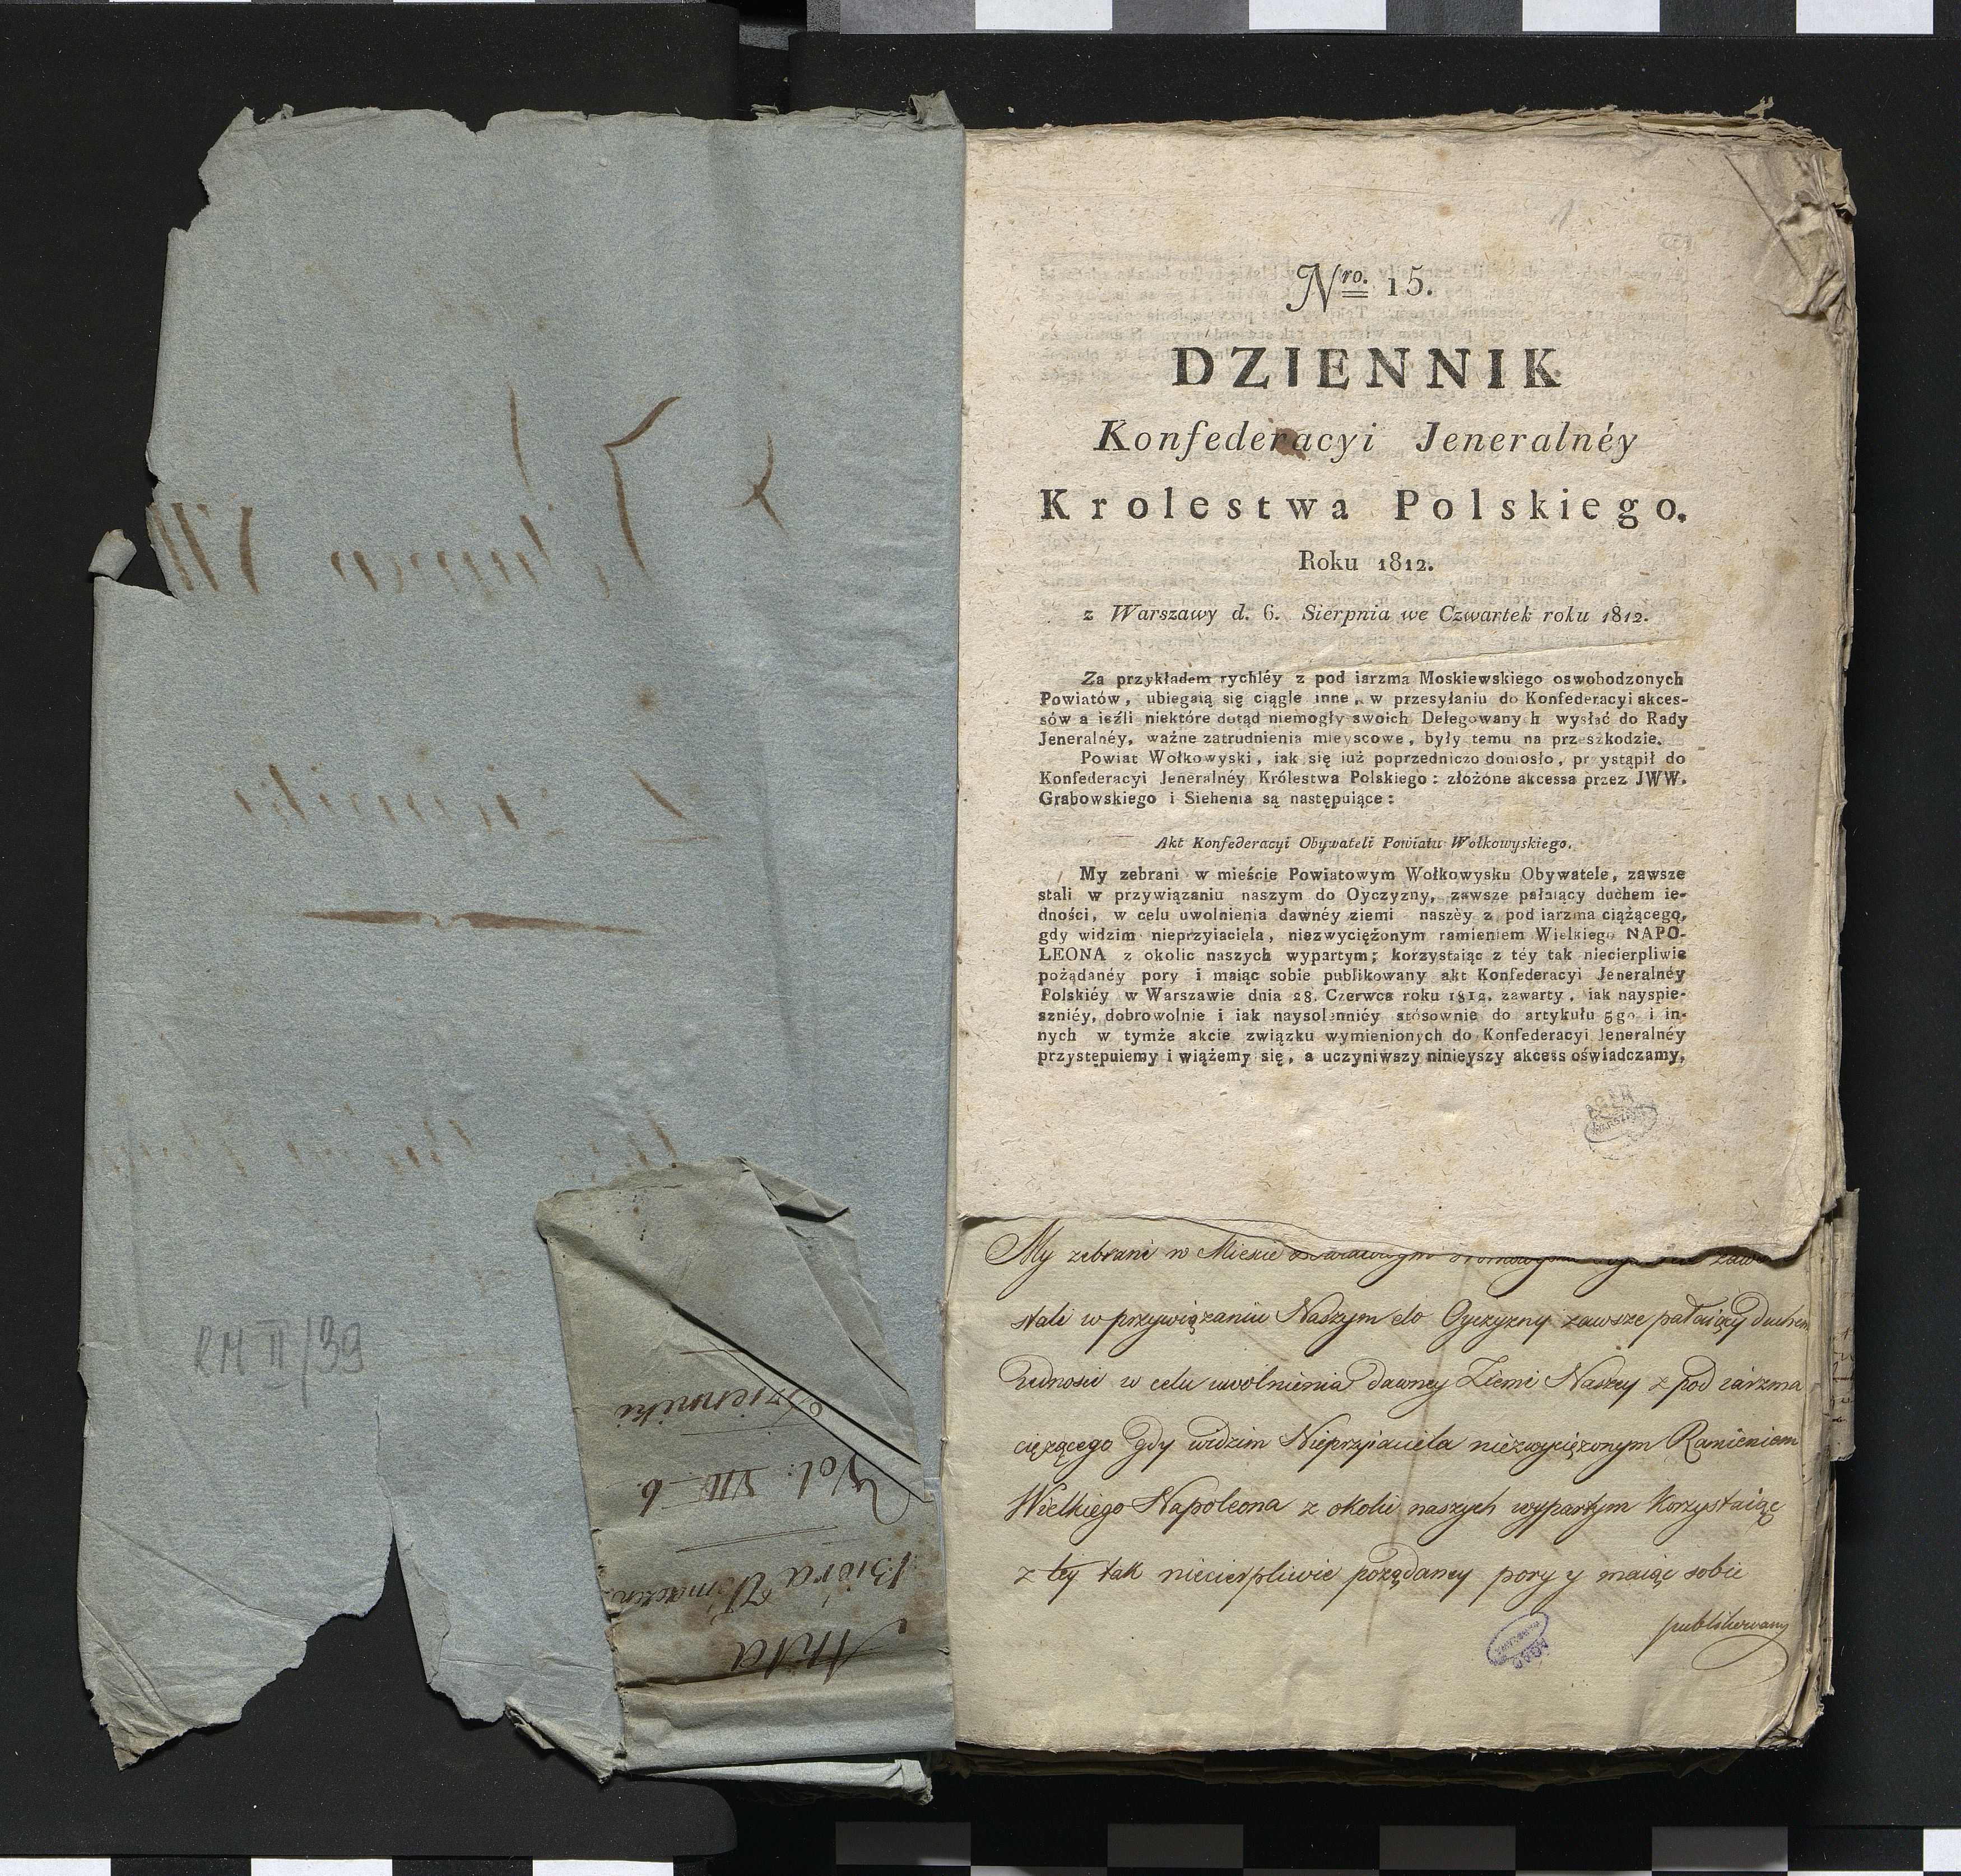 RM II/39
Akta
Bióra
Vol: VII b.
Dzienniki
1
Nro. 15.
DZIENNIK
Konfederacyi Jeneralnéy
Krolestwa Polskiego.
Roku 1812.
z Warszawy d. 6. Sierpnia we Czwartek roku 1812.
Za przykładem rychléy z pod iarzma Moskiewskiego oswobodzonych
Powiatów, ubiegaią się ciągle inne, w przesyłaniu do Konfederacyi akces-
sów a ieźli niektóre dotąd niemogły swoich Delegowany h wysłać do Rady
Jeneralnéy, ważne zatrudnienia mieyscowe, były temu na przeszkodzie.
Powiat Wołkowyski, iak się iuż poprzedniczo doniosło, pr ystąpił do
Konfederacyi Jeneralnéy Królestwa Polskiego: złożóne akcessa przez JWW.
Grabowskiego i Siehenia są następuiące:
Akt Konfederacyi Obywateli Powiatu Wołkowyskiego.
My zebrani w mieście Powiatowym Wołkowysku Obywatele, zawsze
stali w przywiązaniu naszym do Oyczyzny, zawsze pałaiący duchem ie-
dności, w celu uwolnienia dawnéy ziemi naszéy z pod iarzma ciążącego,
gdy widzim nieprzyiaciela, niezwyciężonym ramieniem Wielkiego NAPO-
LEONA z okolic naszych wypartym; korzystaiąc z téy tak niecierpliwie
pożądanéy pory i maiąc sobie publikowany akt Konfederacyi Jeneralnéy
Polskiéy w Warszawie dnia 28. Czerwca roku 1812. zawarty, iak nayspie-
szniéy, dobrowolnie i iak naysolenniéy stósownie do artykułu 5go i in-
nych w tymże akcie związku wymienionych do Konfederacyi Jeneralnéy
przystępuiemy i wiążemy się, a uczyniwszy ninieyszy akcess oświadczamy,
AGAD
WARSZAWA
My zebrani w Miescie
stali w przywiązaniu Naszym do Oyczyzny zawsze pałaiący duchem
iednosci w celu uwolnienia dawney Ziemi Naszey z pod iarzma
ciężącego gdy widzim Nieprzyiaciela niezwyciężonym Ramieniem
Wielkiego Napoleona z okolic naszych wypartym Korzystaiąc
z tey tak niecierpliwie pożądaney pory y maiąc sobie
publikowany
AGAD
WARSZAWA